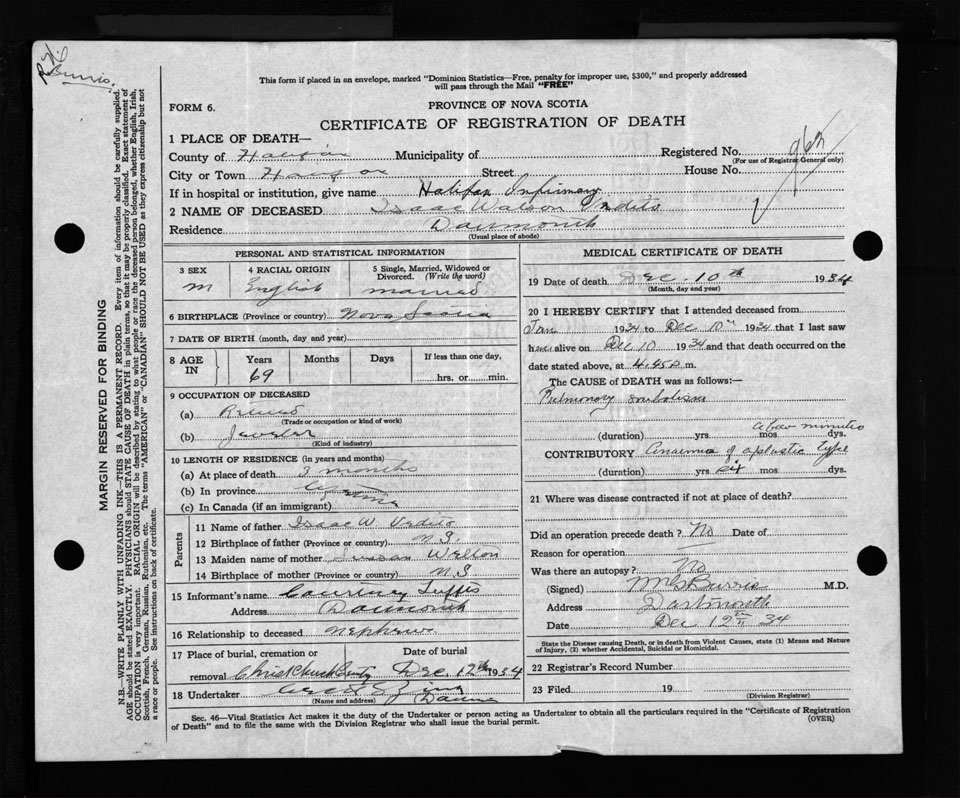 Burris.
This form if placed in an envelope, marked "Dominion Statistics—Free, penalty for improper use, $300," and properly addressed
will pass through the Mail "FREE"
FORM 6.
PROVINCE OF NOVA SCOTIA
CERTIFICATE OF REGISTRATION OF DEATH
1 PLACE OF DEATH—
County of Halifax Municipality of Registered No.
(For use of Registrar General only)
City or Town Halifax Street House No.
If in hospital or institution, give name Halifax Infirmary
2 NAME OF DECEASED Isaac Watson Vidito
Residence Dartmouth
(Usual place of abode)
PERSONAL AND STATISTICAL INFORMATION
3 SEX 4 RACIAL ORIGIN 5 Single, Married, Widowed or
Divorced. (Write the word)
M English married
6 BIRTHPLACE (Province or country) Nova Scotia
7 DATE OF BIRTH (month, day and year)
8 AGE IN Years Months Days If less than one day,
69 hrs. or min.
9 OCCUPATION OF DECEASED
(a) Retired
(Trade or occupation or kind of work)
(b) Jeweler
(Kind of industry)
10 LENGTH OF RESIDENCE (in years and months)
(a) At place of death 3 months
(b) In province Lifetime
(c) In Canada (if an immigrant)
Parents
11 Name of father Isaac W. Vidito
12 Birthplace of father (Province or country) N.S
13 Maiden name of mother Susan Welton
14 Birthplace of mother (Province or country) N.S
15 Informant's name Courtney Tufts
Address Dartmouth
16 Relationship to deceased nephew
17 Place of burial, cremation or Date of burial
removal Christ Church Cemty Dec. 12th 1934
18 Undertaker
(Name and address)
MEDICAL CERTIFICATE OF DEATH
19 Date of death Dec. 10th 1934
(Month, day and year)
20 I HEREBY CERTIFY that I attended deceased from
Jan 1934 to Dec 10th 1934 that I last saw
h alive on Dec 10 1934 and that death occurred on the
date stated above, at 4.45 P m.
The CAUSE of DEATH was as follows:—
Pulmonary embolism
a few minutes
(duration) yrs. mos dys.
CONTRIBUTORY Anaemia of aplastic type
(duration) yrs. six mos. dys.
21 Where was disease contracted if not at place of death?
Did an operation precede death? No Date of
Reason for operation
Was there an autopsy? No
(Signed) Burris M.D.
Address Dartmouth
Date Dec 12th 34
State the Disease causing Death, or in death from Violent Causes, state (1) Means and Nature
of Injury, (2) whether Accidental, Suicidal or Homicidal.
22 Registrar's Record Number
23 Filed 19
(Division Registrar)
Sec. 46—Vital Statistics Act makes it the duty of the Undertaker or person acting as Undertaker to obtain all the particulars required in the "Certificate of Registration
of Death" and to file the same with the Division Registrar who shall issue the burial permit. (OVER)
MARGIN RESERVED FOR BINDING
N.B.—WRITE PLAINLY WITH UNFADING INK—THIS IS A PERMANENT RECORD. Every item of information should be carefully supplied.
AGE should be stated EXACTLY. PHYSICIANS should STATE CAUSE OF DEATH in plain terms, so that it may be properly classified. Exact statement of
OCCUPATION is very important. RACIAL ORIGIN will be described by stating to what people or race the deceased person belonged, whether English, Irish,
Scottish, French, German, Russian, Ruthenian, etc. The terms "AMERICAN" or "CANADIAN" SHOULD NOT BE USED as they express citizenship but not
a race or people. See instructions on back of certificate.